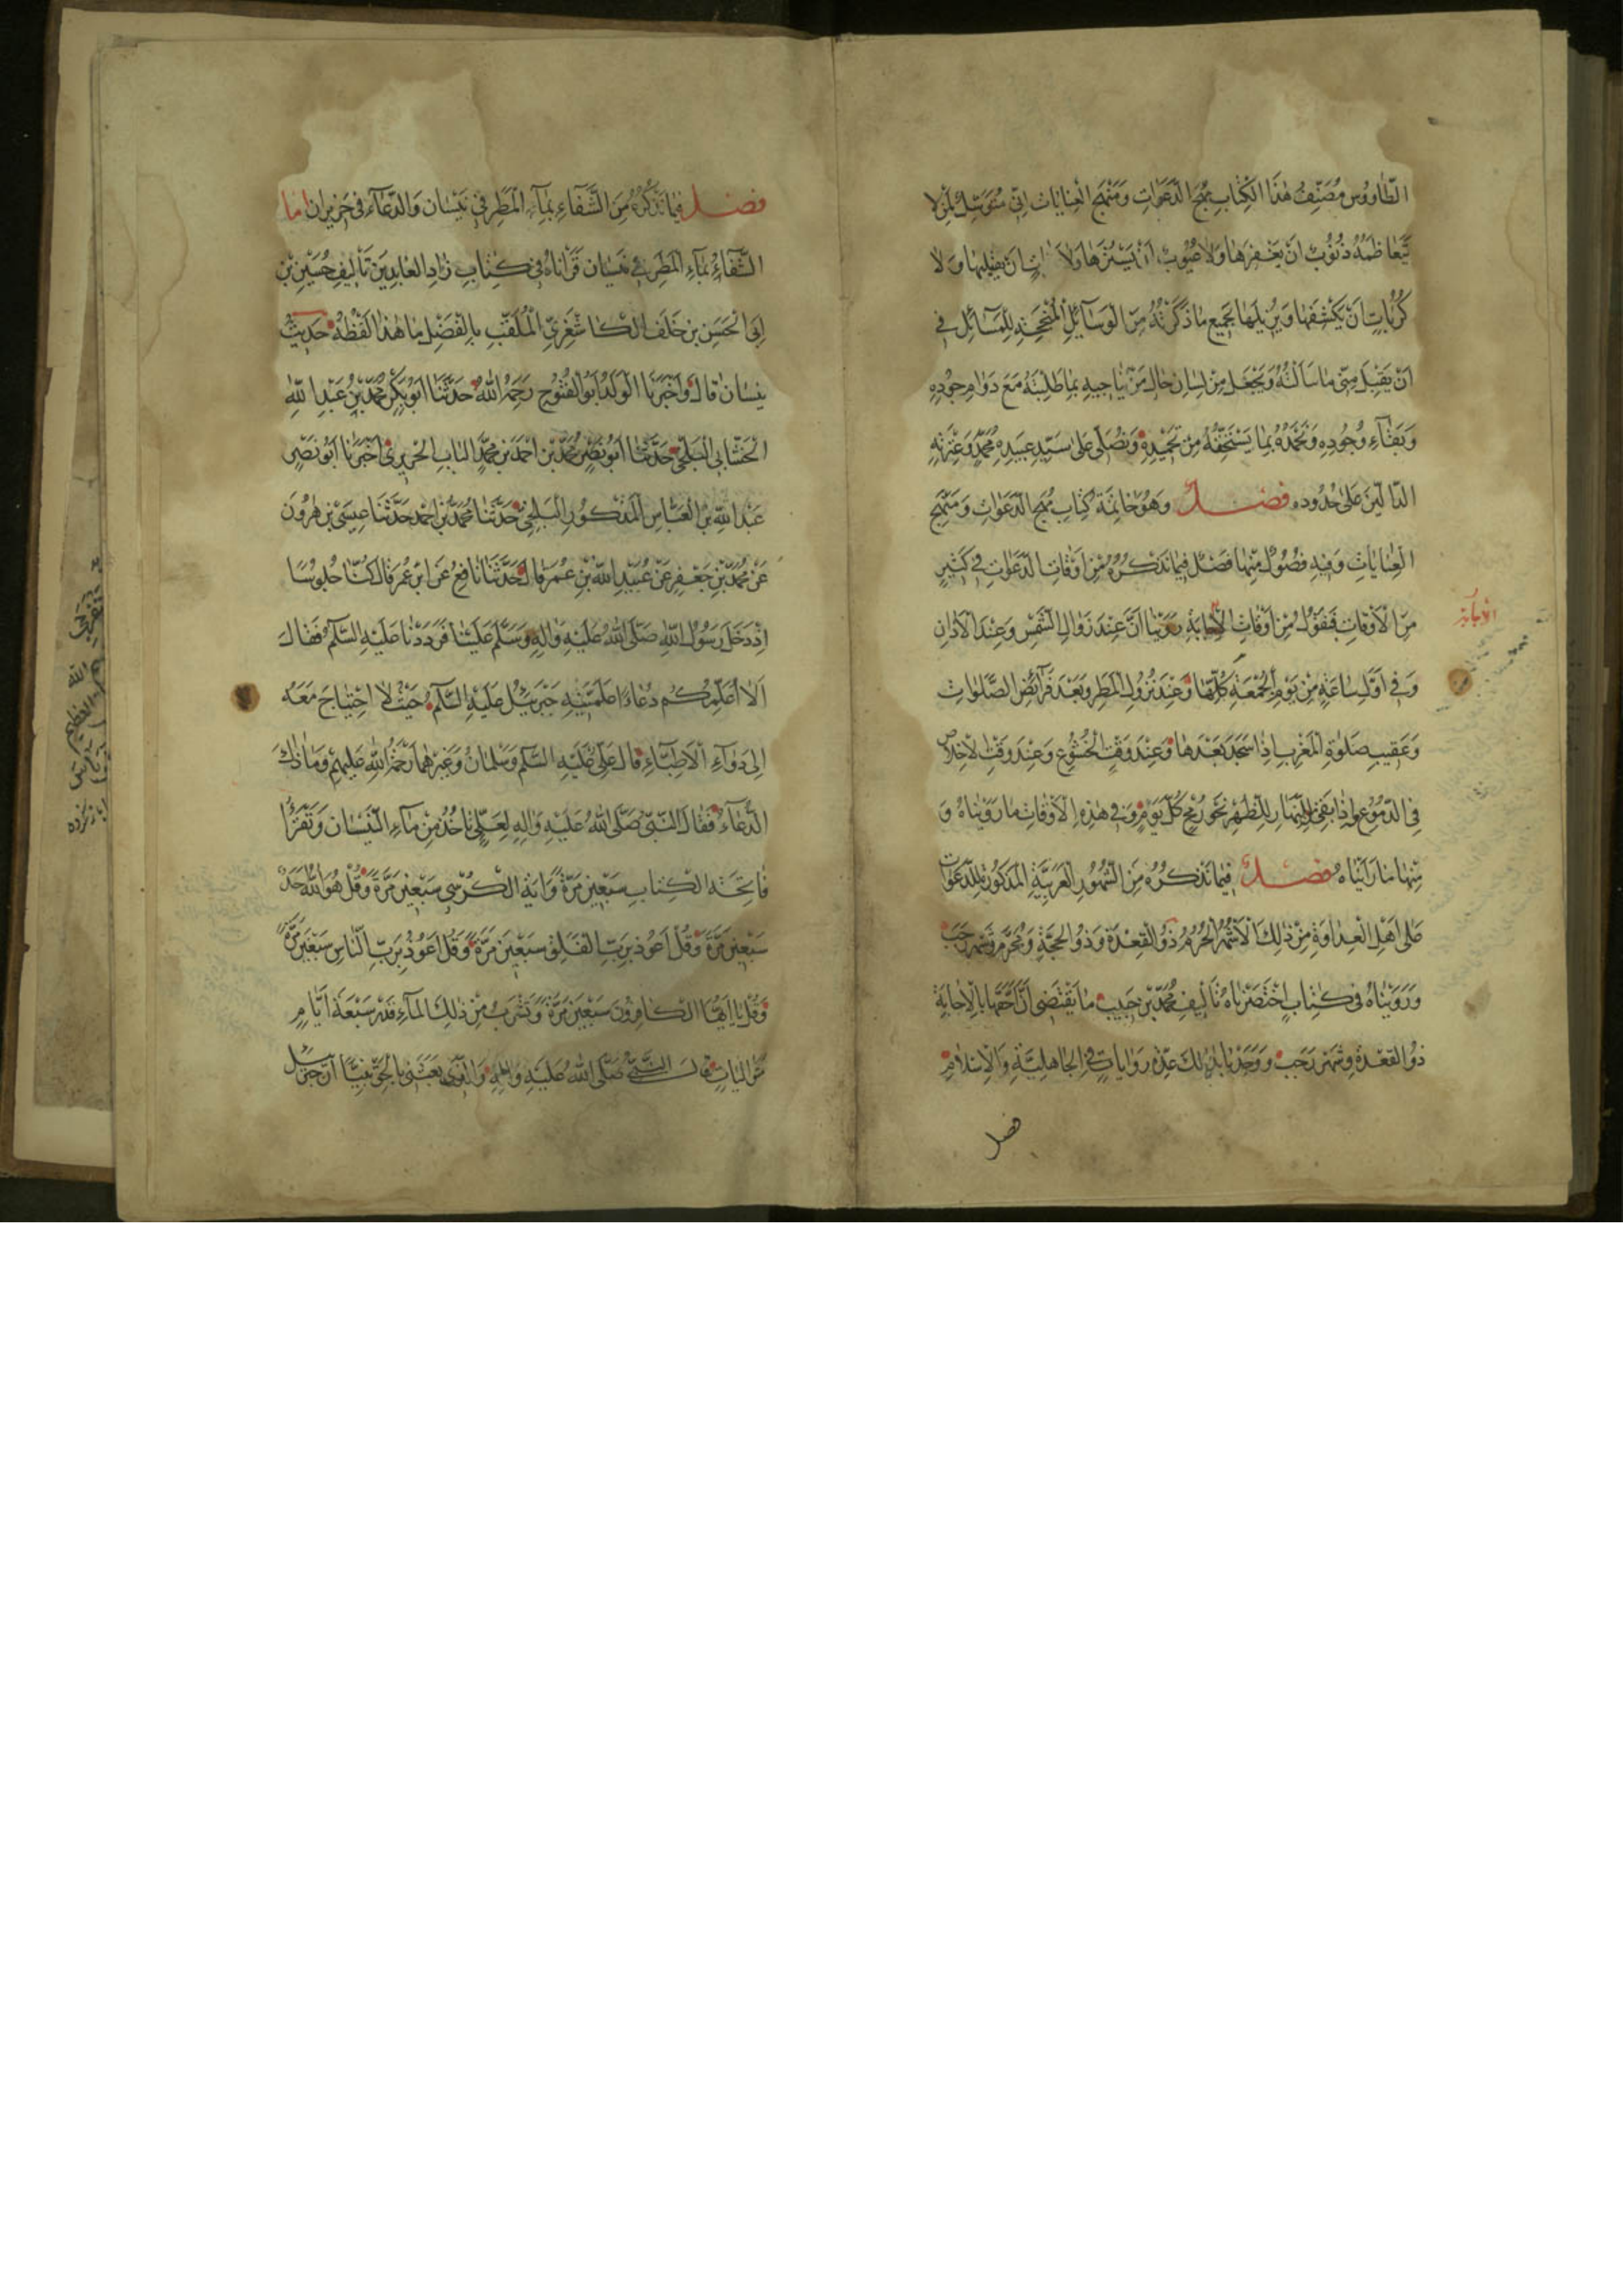 الطاووس مصنف هذا الكتاب مهج الدعوات ومنهج العنايات انى متوسل بمن لا
يتعاظمه ذنوب ان يغفرها ولا عيوب ان يسترها ولا ان يقيلها ولا
كربات ان يكشفها ويزيلها بجميع ما ذكرته من الوسائل المنجحة للمسائل في
ان يقبل منى ما سالته ويجعل من لسان حال من يناجيه بما طلبته مع دوام جوده
وبقاء وجوده ونحمده بما يستحقه من تحميده ونصلى على سيد عبيده محمد وعترته
الدالين على حدوده فصل وهو خاتمة كتاب مهج الدعوات ومنهج
العنايات وفيه فصول منها فصل فيما نذكره من اوقات الدعوات في كثير
من الاوقات فنقول من اوقات الاجابة روينا ان عند زوال الشمس وعند الاذان
وفى اول ساعة من يوم الجمعة كلها وعند نزول المطر وبعد فرائض الصلوات
وعقيب صلوة المغرب اذا سجد بعدها وعند وقت الخشوع وعند وقت الاخلاص
في الدموع واذا بقى من النهار للظهر نحو رمح كل يوم وفى هذه الاوقات ما رويناه و
منها ما رايناه فصل فيما نذكره من الشهور العربية المذكورة للدعوات
على اهل العداوة من ذلك الاشهر الحرم ذو القعدة وذو الحجة ومحرم وشهر رجب
ورويناه في كتاب اختصرناه تاليف محمد بن حبيب ما يقتضى ان احقها بالاجابة
ذو القعدة وشهر رجب ووجدنا بذلك عدة روايات في الجاهلية والاسلام
فصل
الاجابة
فصل فيما نذكره من الشفاء بماء المطر في نيسان والدعاء في حزيران اما
الشفاء بماء المطر في نيسان قراناه في كتاب زاد العابدين تاليف حسين بن
ابى الحسن بن خلف الكاشغرى الملقب بالفضل ما هذا لفظه حديث
نيسان قال واخبرنا الوالد ابو الفتوح رحمه الله حدثنا ابو بكر محمد بن عبد الله
الخشابى البلخى حدثنا ابو نصر محمد بن احمد بن محمد الباب الحريرى اخبرنا ابو نصر
عبد الله بن العباس المذكور البلخى حدثنا محمد بن احمد حدثنا عيسى بن هرون
عن محمد بن جعفر عن عبيد الله بن عمر قال حدثنا نافع عن ابن عمر قال كنا جلوسا
اذ دخل رسول الله صلى الله عليه واله وسلم علينا فرددنا عليه السلام فقال
الا اعلمكم دعاء علمنيه جبرئيل عليه السلام حيث لا احتياج معه
الى دواء الاطباء قال على عليه السلام وسلمان وغيرهما رحمة الله عليهم وما ذاك
الدعاء فقال النبى صلى الله عليه واله لعلى تاخذ من ماء النيسان وتقرا
فاتحة الكتاب سبعين مرة واية الكرسى سبعين مرة وقل هو الله احد
سبعين مرة وقل اعوذ برب الفلق سبعين مرة وقل اعوذ برب الناس سبعين مرة
وقل يا ايها الكافرون سبعين مرة وتشرب من ذلك الماء قدر سبعة ايام
قال النبى صلى الله عليه واله والذى بعثنى بالحق نبيا ان جبرئيل